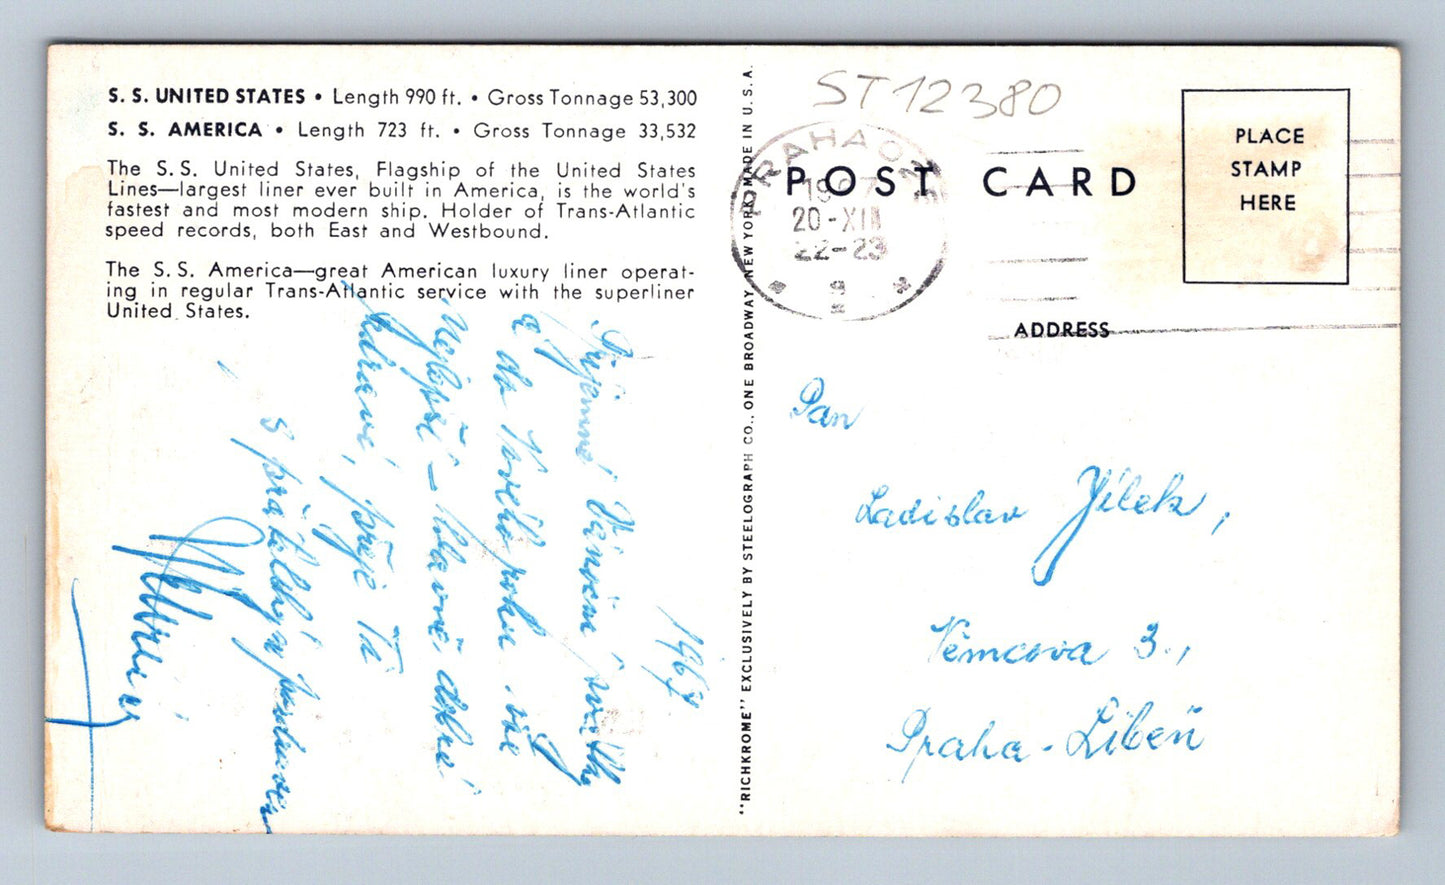 S. S. UNITED STATES • Length 990 ft. • Gross Tonnage 53,300
S. S. AMERICA • Length 723 ft. • Gross Tonnage 33,532
The S.S. United States, Flagship of the United States
Lines—largest liner ever built in America, is the world's
fastest and most modern ship. Holder of Trans-Atlantic
speed records, both East and Westbound.
The S.S. America—great American luxury liner operat-
ing in regular Trans-Atlantic service with the superliner
United States.
1967
Příjemné Vánoční svátky
a do Nového roku vše
nejlepší – hlavně dobré
zdraví, přeje Ti
s přátelským pozdravem
"RICHKROME" EXCLUSIVELY BY STEELOGRAPH CO., ONE BROADWAY, NEW YORK MADE IN U.S.A.
ST12380
POST CARD
PRAHA
20-XII
22-23
PLACE
STAMP
HERE
ADDRESS
Pan
Ladislav Jílek,
Němcova 3.,
Praha - Libeň